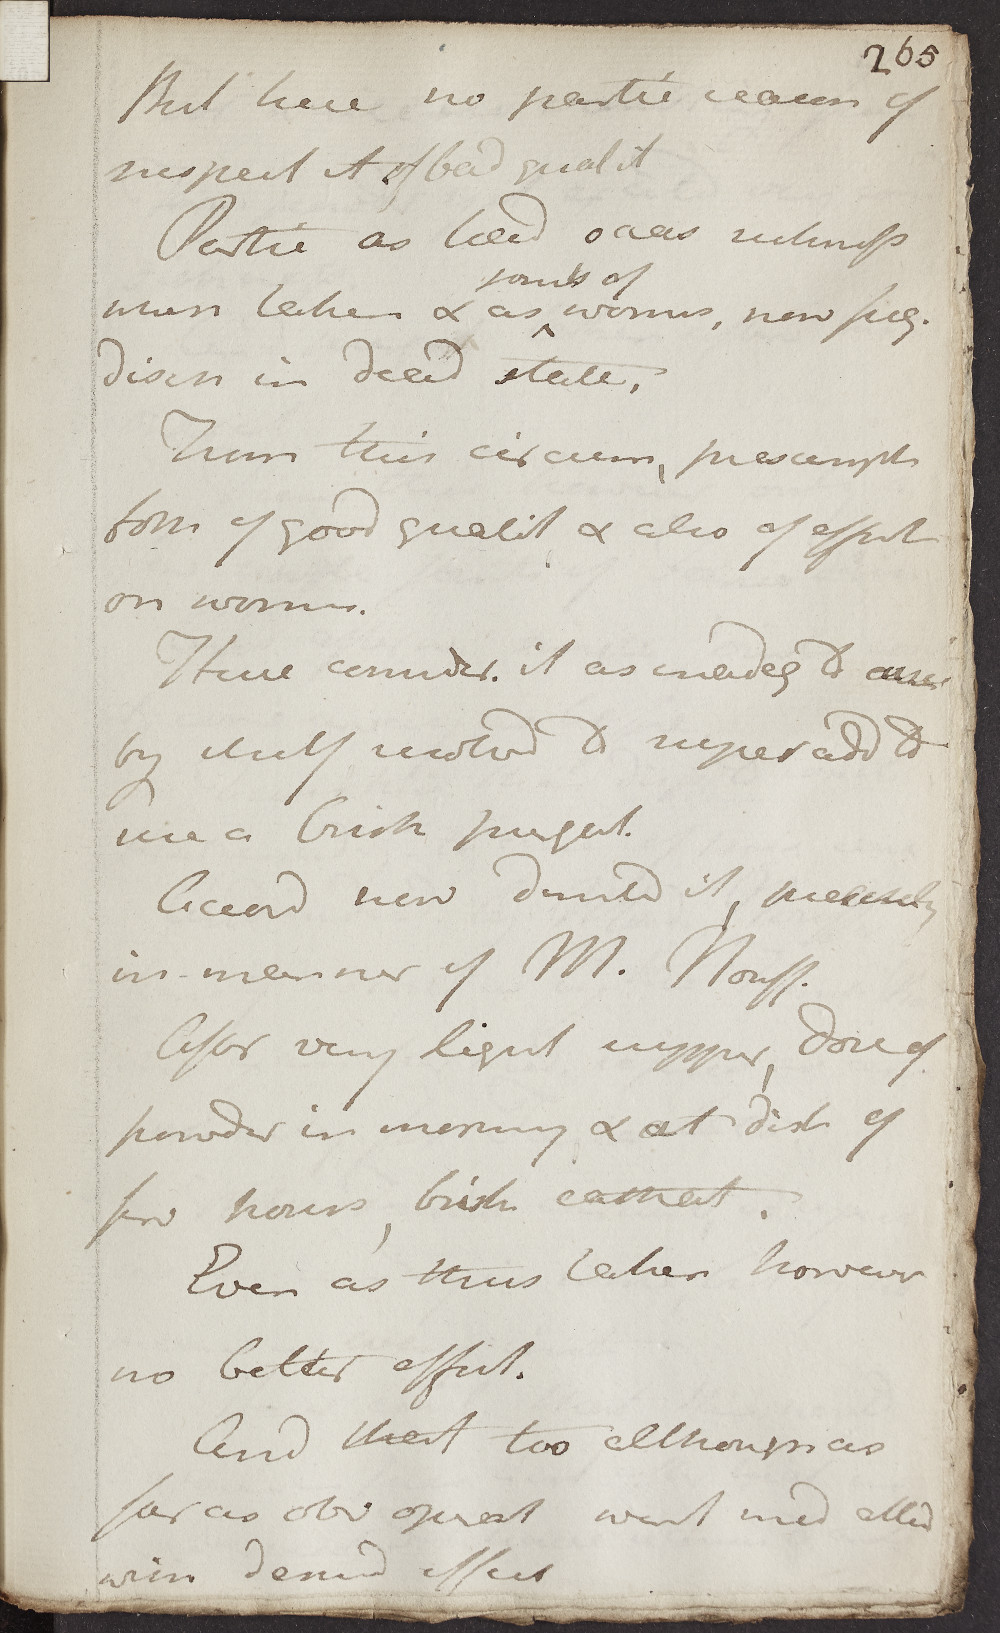 265
But here no partic reason of
suspect it of bad qualit
Partic as had occas sickness
when taken & as joints of worms, now freq.
disch in dead state.
From this circum, presumpt
both of good qualit & also of effect
on worms.
Have consider. it as inadeq to
by itself resolved to superadd to
use a brisk purgat.
Accord now directed it, precisely
in manner of M. Nouff.
After very light supper, dose of
powder in morning & at dist of
few hours, brisk cathart.
Even as thus taken however
no better effect.
And that too although as
far as obv operat went med atted
with desired effect